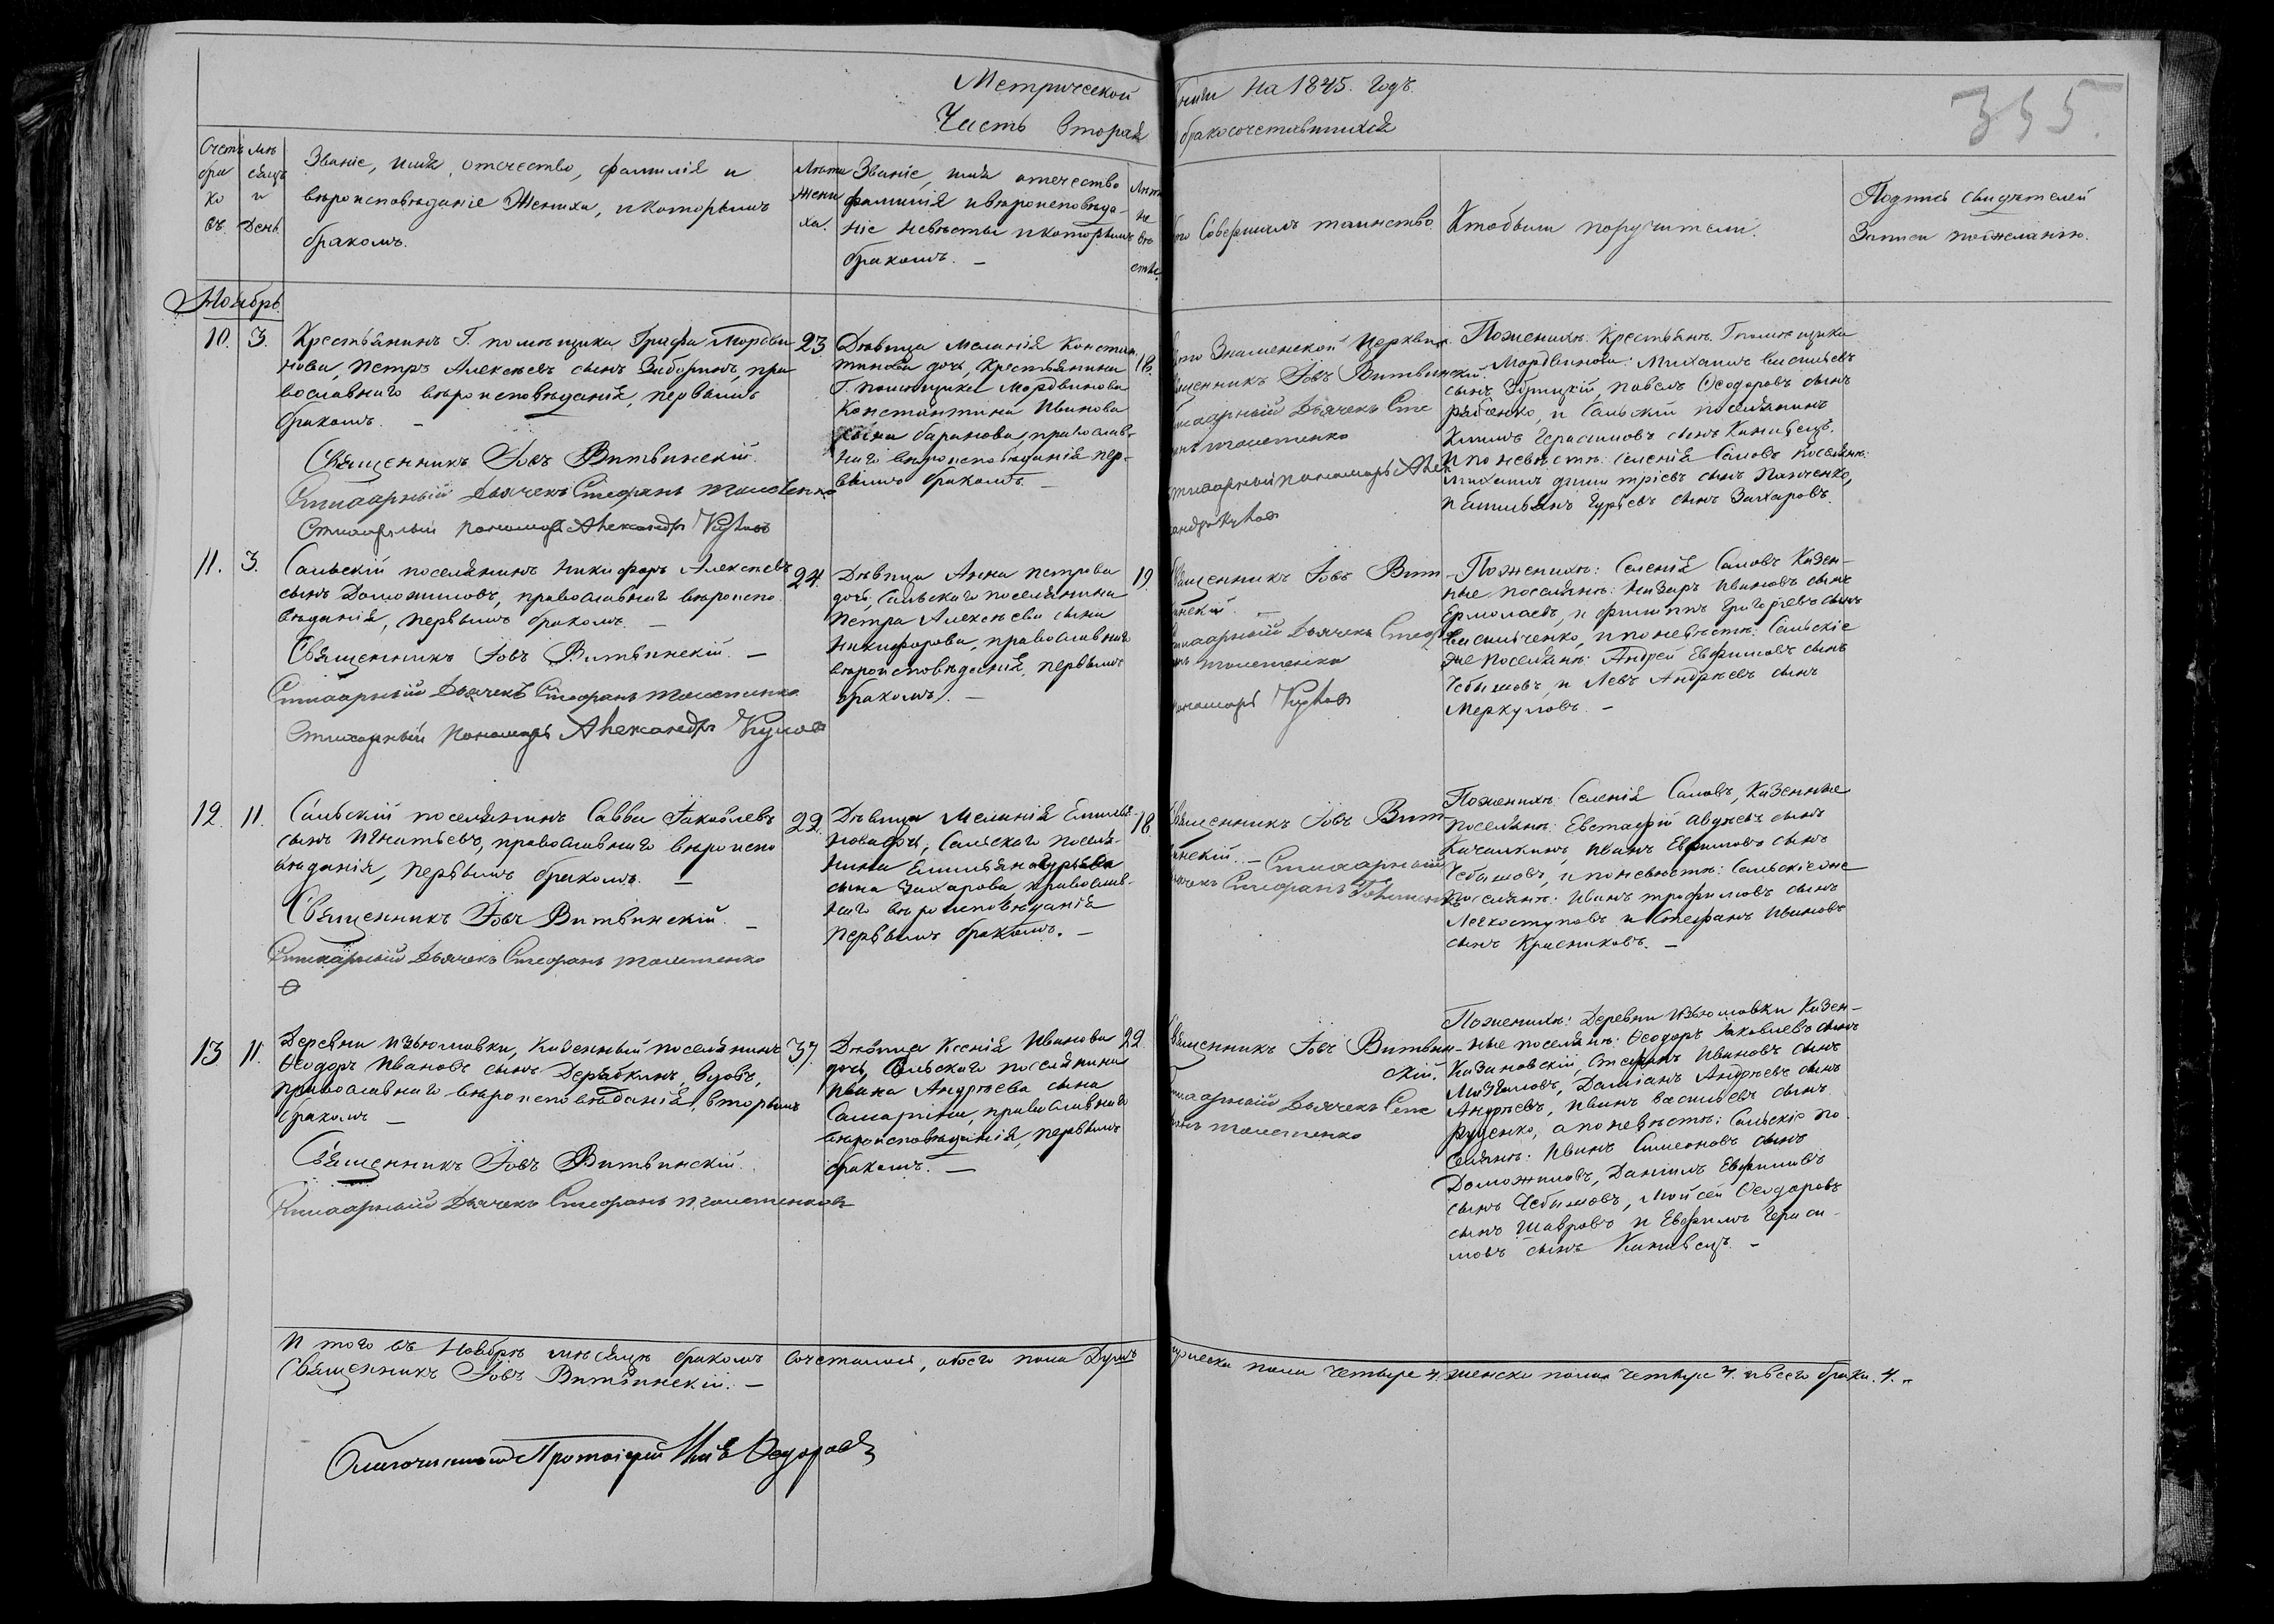 Метрической книги на 1845. Годъ.
Часть вторая бракосочетавшихся
355
Счетъ браковъ.
мѣсяцъ и День.
Званіе, имя, отечество, фамилія и
вѣроисповѣданіе Жениха, и которымъ
бракомъ.
Лѣта Жениха.
Званіе, имя отечество
фамилія и вѣроисповѣда-
ніе невѣсты и которымъ
бракомъ. –
Лѣта невѣсты.
Кто Совершилъ таинство.
Кто были поручители.
Подпись свидѣтелей
Записи по желанію.
Ноябрь.
10. 3.
Крестьянинъ Г. помѣщика Графа Мордви
нова, Петръ Алексѣевъ сынъ Заборинъ, пра
вославнаго вѣроисповѣданія, первымъ
бракомъ. –
Священникъ Іовъ Витвинскій
Стихарный Дьячекъ Стефанъ
Стихарный пономарь Александръ
23.
Дѣвица Меланія Констан
тинова дочь, Крестьянина
Г. помѣщика Мордвинова
Константина Иванова
сына баранова, православ-
наго вѣроисповѣданія пер-
вымъ бракомъ –
18.
Знаменской Церкви
Священникъ Іовъ Витвинскій.
Стихарный Дьячекъ Сте
Стихарный пономарь Алек
По женихѣ: Крестьянъ. Г помѣщика
Мордвинова: Михаилъ васильевъ
сынъ Збрицкій, павелъ Ѳеодоровъ сынъ
рябенко, и Сальскій поселянинъ
Климъ Герасимовъ сынъ Канивецъ.
И по невѣстѣ: Селенія Саловъ поселяне:
михаилъ дмитріевъ сынъ Панченко,
и Емильянъ Гурьевъ сынъ Захаровъ.
11. 3.
Сальскій поселянинъ Никифоръ Алексѣевъ
сынъ Доможиловъ, православнаго вѣроиспо
вѣданія, первымъ бракомъ. –
Священникъ Іовъ Витвинскій. –
Стихарный Дьячекъ Стефанъ
Стихарный пономарь Александръ
24.
Дѣвица Анна петрова
дочь, Сальскаго поселянина
Петра Алексѣева сына
Никифорова, православнаго
вѣроисповѣданія, первымъ
бракомъ. –
19
Священникъ Іовъ Вит-
винскій. –
Стихарный Дьячекъ Стеф
пономарь
По женихѣ: Селенія Саловъ Казен-
ные поселяне: Назаръ Ивановъ сынъ
Ермолаевъ, и филиппъ Григорьевъ сынъ
Васильченко, и по невѣстѣ: Сальскіе
же поселяне: Андрей Евфимовъ сынъ
Чебышовъ, и Левъ Андрѣевъ сынъ
Меркуловъ. –
12. 11.
Сальскій поселянинъ Савва Іаковлевъ
сынъ Игнатьевъ, православнаго вѣроиспо
вѣданія, первымъ бракомъ. –
Священникъ Іовъ Витвинскій. –
Стихарный Дьячекъ Стефанъ
22.
Дѣвица Меланія Емилья-
нова дочь, Сальскаго поселя-
нина Емильяна Гурьева
сына Захарова, православ-
наго вѣроисповѣданія
первымъ бракомъ. –
18.
Священникъ Іовъ Вит-
винскій. – Стихарный
Дьячекъ Стефанъ
По женихѣ: Селенія Саловъ, Казенные
поселяне: Евстафій Авдѣевъ сынъ
Качалкинъ, Иванъ Евфимовъ сынъ
Чебышовъ, и по невѣстѣ: Сальскіе же
поселяне: Иванъ трофимовъ сынъ
Легкоступовъ и Стефанъ Ивановъ
сынъ Красниковъ. –
13 11.
Деревни Изюмовки, Казенный поселянинъ
Ѳеодоръ Ивановъ сынъ Дерябкинъ, вдовъ,
православнаго вѣроисповѣданія, вторымъ
бракомъ –
Священникъ Іовъ Витвинскій.
Стихарный Дьячекъ Стефанъ
37.
Дѣвица Ксенія Иванова
дочь, Сальскаго поселянина
Ивана Андрѣева сына
Самарина, православнаго
вѣроисповѣданія, первымъ
бракомъ. –
22.
Священникъ Іовъ Витвин-
скій.
Стихарный Дьячекъ Сте
По женихѣ: Деревни Изюмовки Казен-
ные поселяне: Ѳеодоръ Іаковлевъ сынъ
Казановскій, Стефанъ Ивановъ сынъ
Даміанъ Андрѣевъ сынъ
Андрѣевъ, Иванъ васильевъ сынъ
Руденко, а по невѣстѣ: Сальскіе по
селяне: Иванъ Симеоновъ сынъ
Доможиловъ, Даніилъ Евфимовъ
сынъ Чебышовъ, Мойсей Ѳеодоровъ
сынъ Шавровъ и Евфимъ Гераси-
мовъ сынъ Канивецъ. –
И того въ Ноябрѣ мѣсяцѣ бракомъ сочеталось, обоего пола Душъ мужеска пола четыре 4. женска пола четыре 4. и всего брака. 4. –
Священникъ Іовъ Витвинскій. –
Благочинный Протоіерей